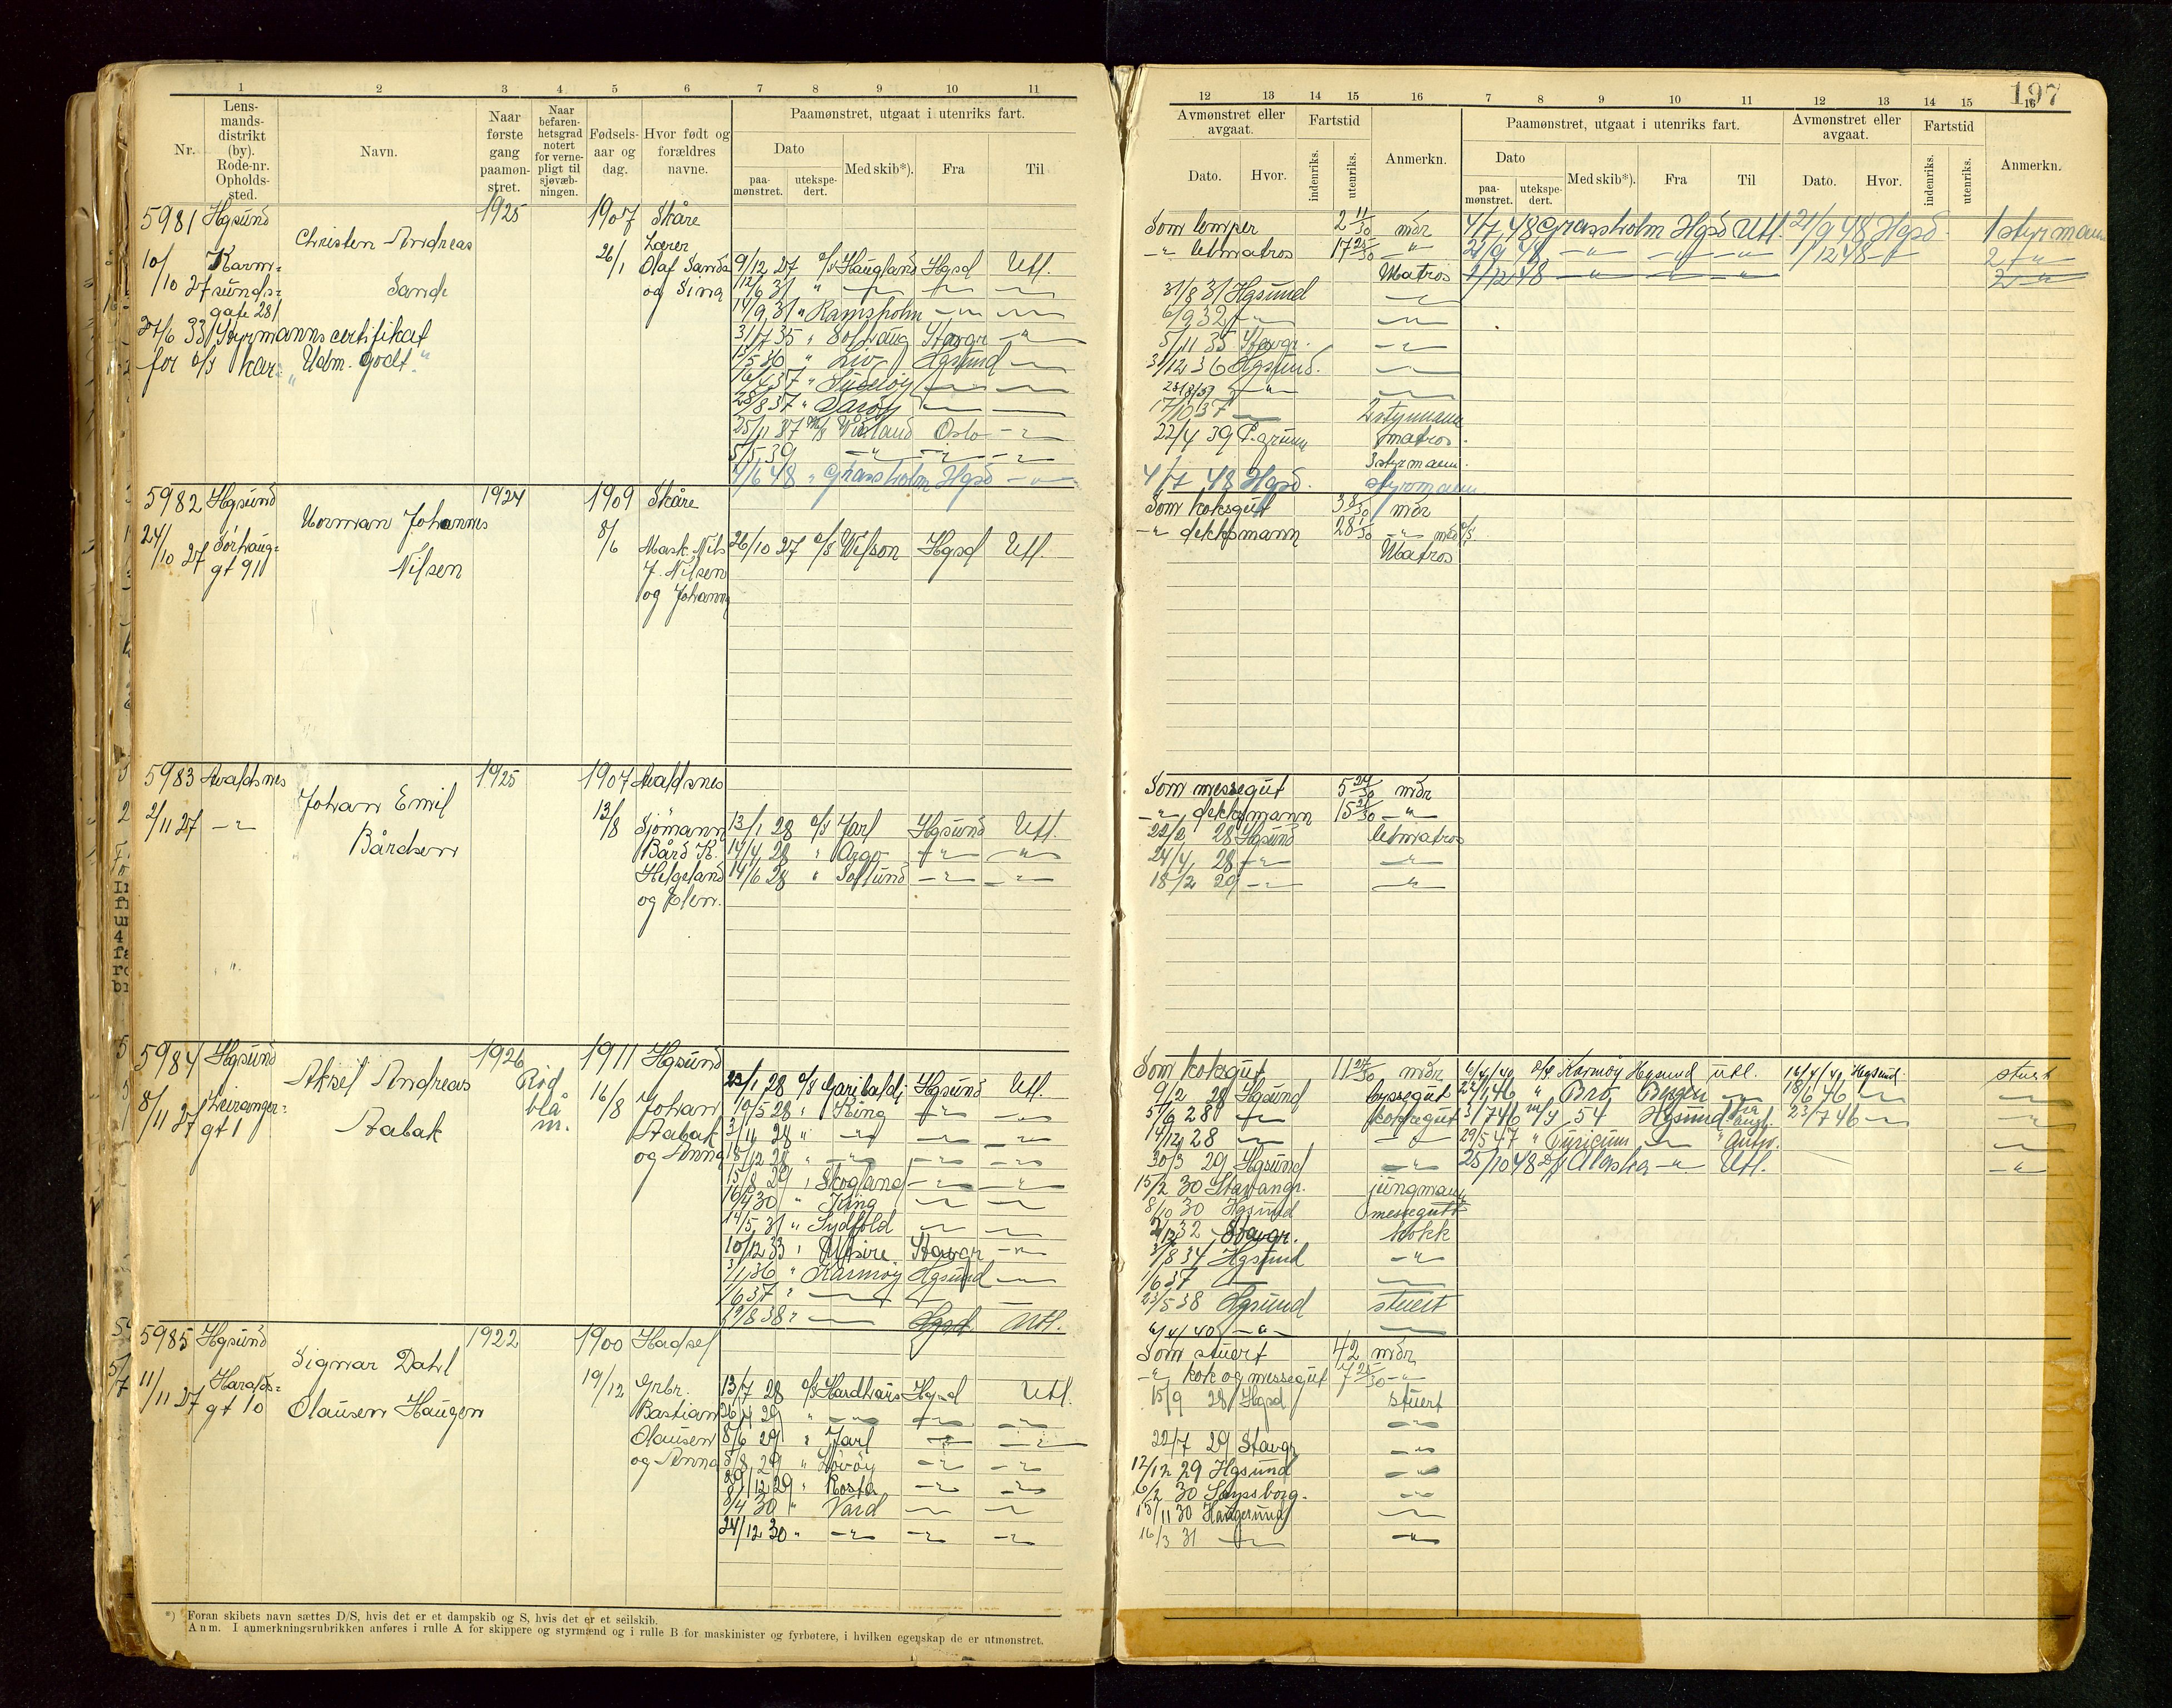 197
1 2 3 4 5 6 7 8 9 10 11
Nr.
Lens-
mands-
distrikt
(by).
Rode-nr.
Opholds-
sted.
Navn.
Naar
første
gang
paamøn-
stret.
Naar
befaren-
hetsgrad
notert
for verne-
pligt til
sjøvæb-
ningen.
Fødsels-
aar og
dag.
Hvor født og
forældres
navne.
Paamønstret, utgaat i utenriks fart.
Dato
paa-
mønstret.
utekspe-
dert.
Med skib*).
Fra
Til
12 13 14 15 16 7 8 9 10 11 12 13 14 15 16
Avmønstret eller
avgaat.
Dato.
Hvor.
Fartstid
indenriks.
utenriks.
Anmerkn.
Paamønstret, utgaat i utenriks fart.
Dato
paa-
mønstret.
utekspe-
dert.
Med skib*).
Fra
Til
Avmønstret eller
avgaat.
Dato.
Hvor.
Fartstid
indenriks.
utenriks.
Anmerkn.
5981 Hgsund 1925 1907 Skåre
Christen Andreas
Sande
10/10 27 Karm-
sunds-
gate 281
26/1 Lærer
Olaf Sande
og Sina
27/6 33 Styrmannscertifikat
for
"Udm. godt"
9/12 27 Haugland Hgsd Utl.
14/9 31 " Ramsholm
31/7 35 " Solhaug Stavgr
Liv Hgsund
28/8 37 "
25/11 37 Oslo
5/5 39
4/6 48 " Grassholm Hgsd
Som lemper 2 11/30 mdr
letmatros 17 25/30 "
Matros
31/8 31 Hgsund
6/9 32
5/11 35 Stavgr.
31/12 36 Hgsund.
28/8/37
17/10 37 2 styrmann
22/4 39 P.grunn matros.
3 styrmann.
4/7 48 Hgsd. styrmann
4/7 48 Grassholm Hgsd Utl. 21/9 48 Hgsd 1 styrmann
21/9 48 1/12 48 2
1/12 48 2
5982 Hgsund 1924 1909 Skåre
Norman Johannes
Nilsen
24/10 27 Sørhaug-
gt 91
8/6 Mask. Nils
J. Nilsen
og Johanna
26/10 27 Wilson Hgsd Utl.
Som koksgut 3 8/30 mdr
dekksmann 28 1/30
Matros
5983 Avaldsnes 1925 1907 Avaldsnes
Johan Emil
Bårdsen
2/11 27
13/8 Sjömann
Bård K.
Helgeland
og Elen.
13/1 28 Jarl Hgsund Utl.
14/4 28 " Argo
14/6 28 " Solsund
Som messegut 5 24/30 mdr
dekksmann 15 21/30
22/2 28 Hgsund letmatros
24/4 28
18/2 29
5984 Hgsund 1926 1911 Hgsund
Aksel Andreas
Aabak
Rid
blå
m.
8/11 27 Geiranger-
gt 1
16/8 Johan
Aabak
og Anna
23/1 28 Garibaldi Hgsund Utl.
10/5 28 " King
3/11 28 "
18/12 28 "
15/8 29 " Skogland
16/4 30 " King
14/5 31 " Sydfold
10/12 33 " Utsire Stavgr
3/1 36 " Karmøy Hgsund
1/6 37 "
19/8 38 " Hgsd. Utl.
Som koksgut 11 27/30 mdr
9/2 28 Hgsund byssegut
5/6 28 koksgut
14/12 28
30/3 29 Hgsund
15/2 30 Stavangr. jungmann
8/10 30 Hgsund messegutt
Stavgr. kokk
3/8 34 Hgsund
1/6 37
23/5 38 Hgsund stuert
6/4/40
6/4/40 Karmøy Hgsund utl. 16/4/41 Hgsund. stuert
22/1 46 " Bro Bergen 18/6 46
3/7 46 m/s 54 Hgsund 23/7 46
29/5 47 " Turicum
25/10 48 Alaska Utl.
5985 Hgsund 1922 1900 Hadsel
Sigmar Dahl
Olausen Haugen
11/11 27 Haralds-
gt 10
19/12 Grbr.
Bastian
Olausen
og Anna
13/7 28 Hardhaus Hgsd Utl.
26/4 29 "
8/6 29 " Jarl
5/8 29 " Lövöy
29/12 29 " Rosta
3/4 30 " Vard
24/12 30 "
Som stuert 42 mdr
kok og messegut 7 25/30
15/9 28 Hgsd stuert
22/7 29 Stavgr
12/12 29 Hgsund
6/2 30 Sarpsborg.
13/11 30 Haugesund
16/3 31
*) Foran skibets navn sættes D/S, hvis det er et dampskib og S, hvis det er et seilskib.
Anm. I anmerkningsrubrikken anføres i rulle A for skippere og styrmænd og i rulle B for maskinister og fyrbøtere, i hvilken egenskap de er utmønstret.